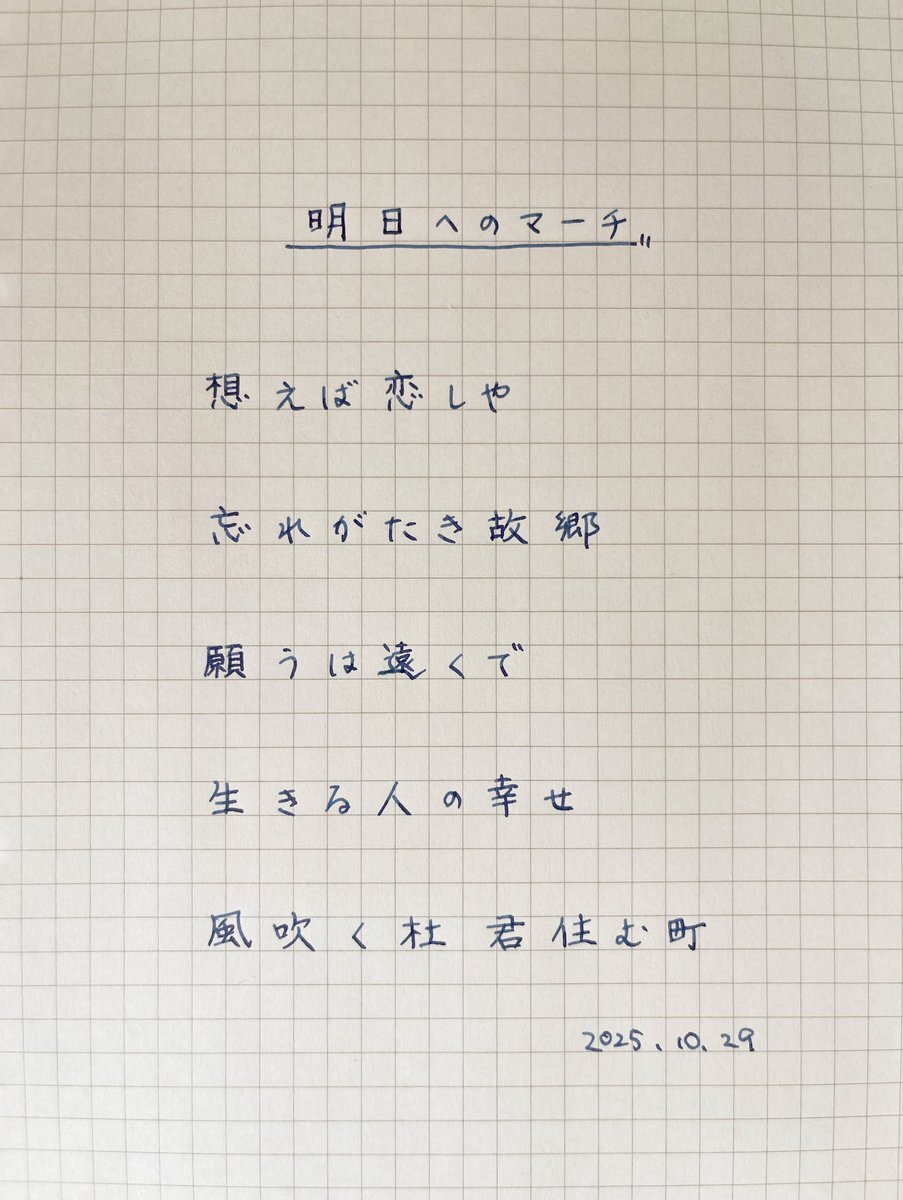 明日へのマーチ〃
想えば恋しや
忘れがたき故郷
願うは遠くで
生きる人の幸せ
風吹く杜 君住む町
2025.10.29